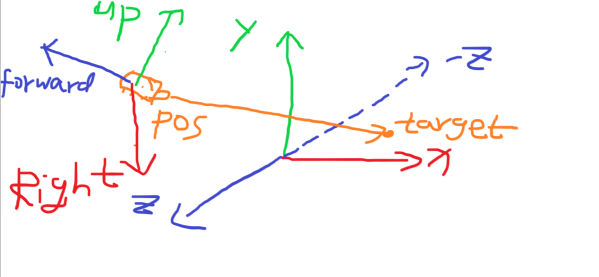 up
Y
-Z
forward
pos
target
X
Right
Z